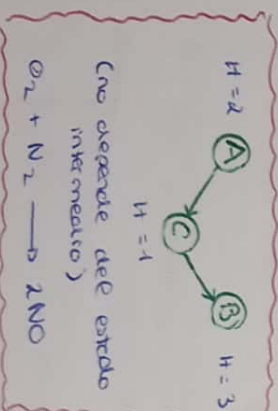 H = 2
A
H = 1
C
B
H = 3
(no depende del estado
intermedio)
O2 + N2 → 2NO